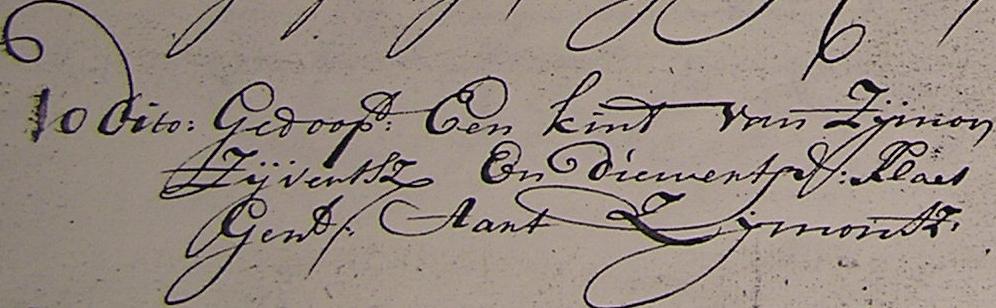 10 dito: Gedoopt: Een kint van Zijmon
Zijvertsz En Dieuwertje: Klaes
Gent: Aant Zijmontsz.